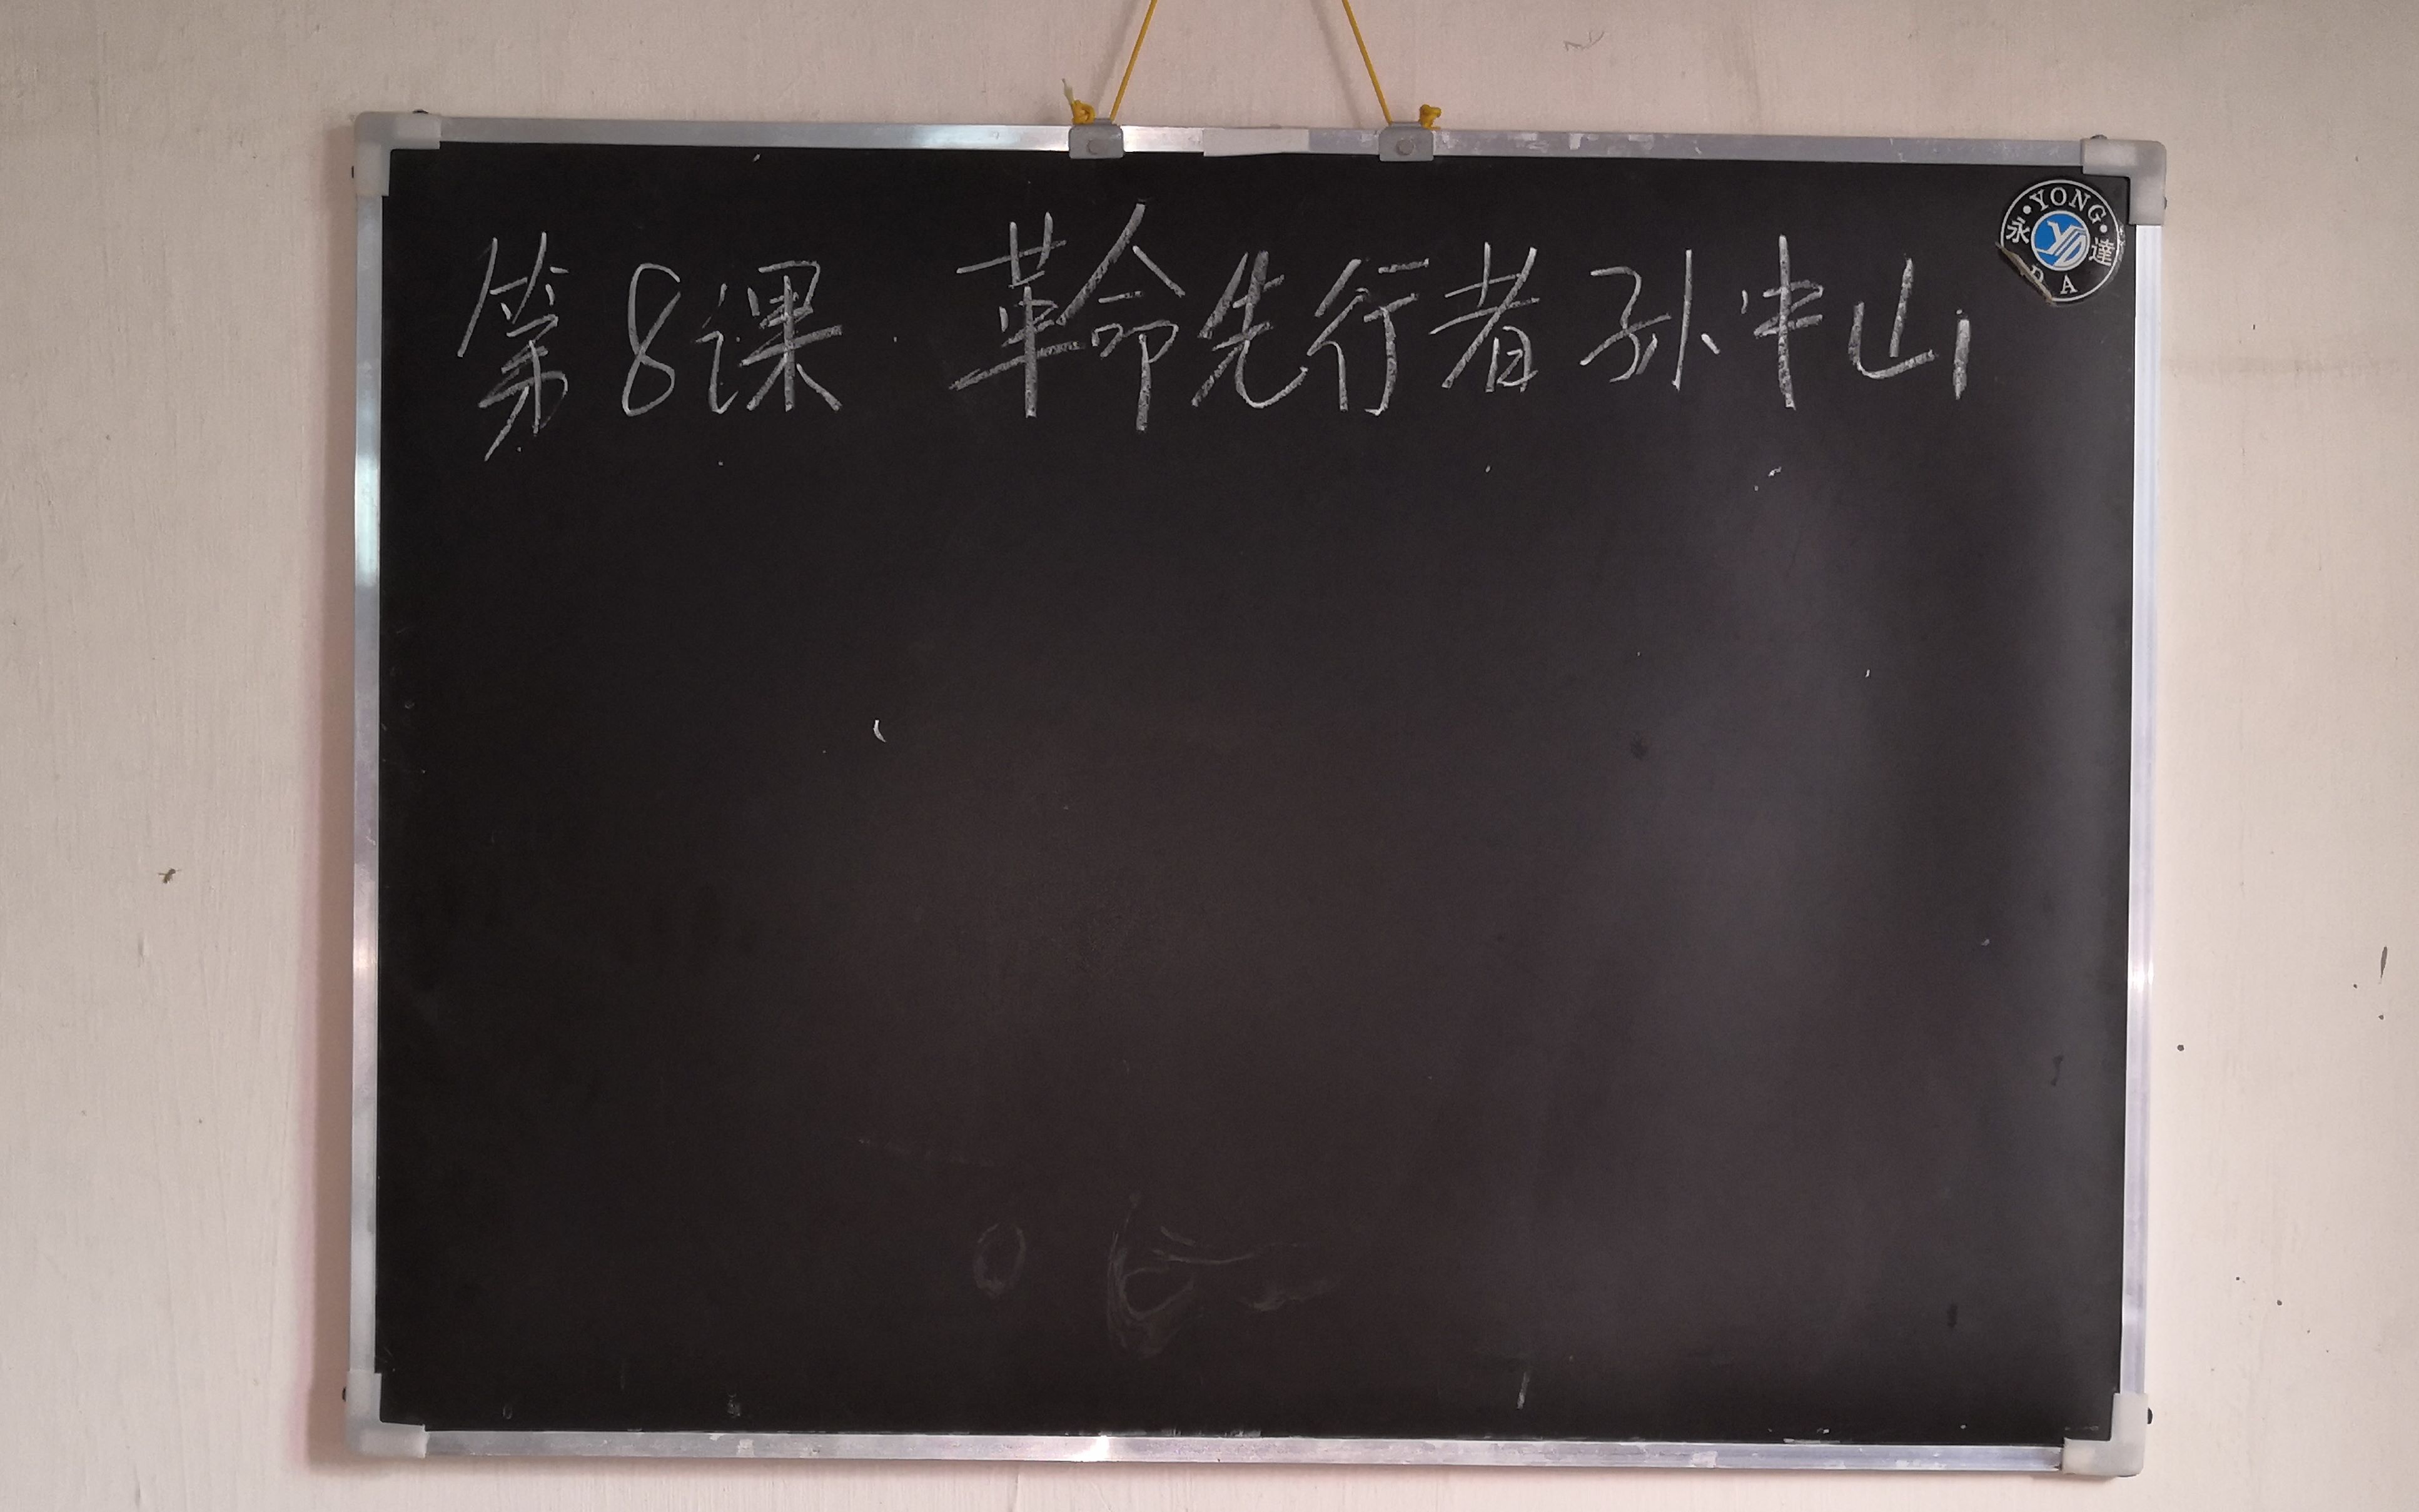 第8课 革命先行者孙中山
YONG
永 達
DA